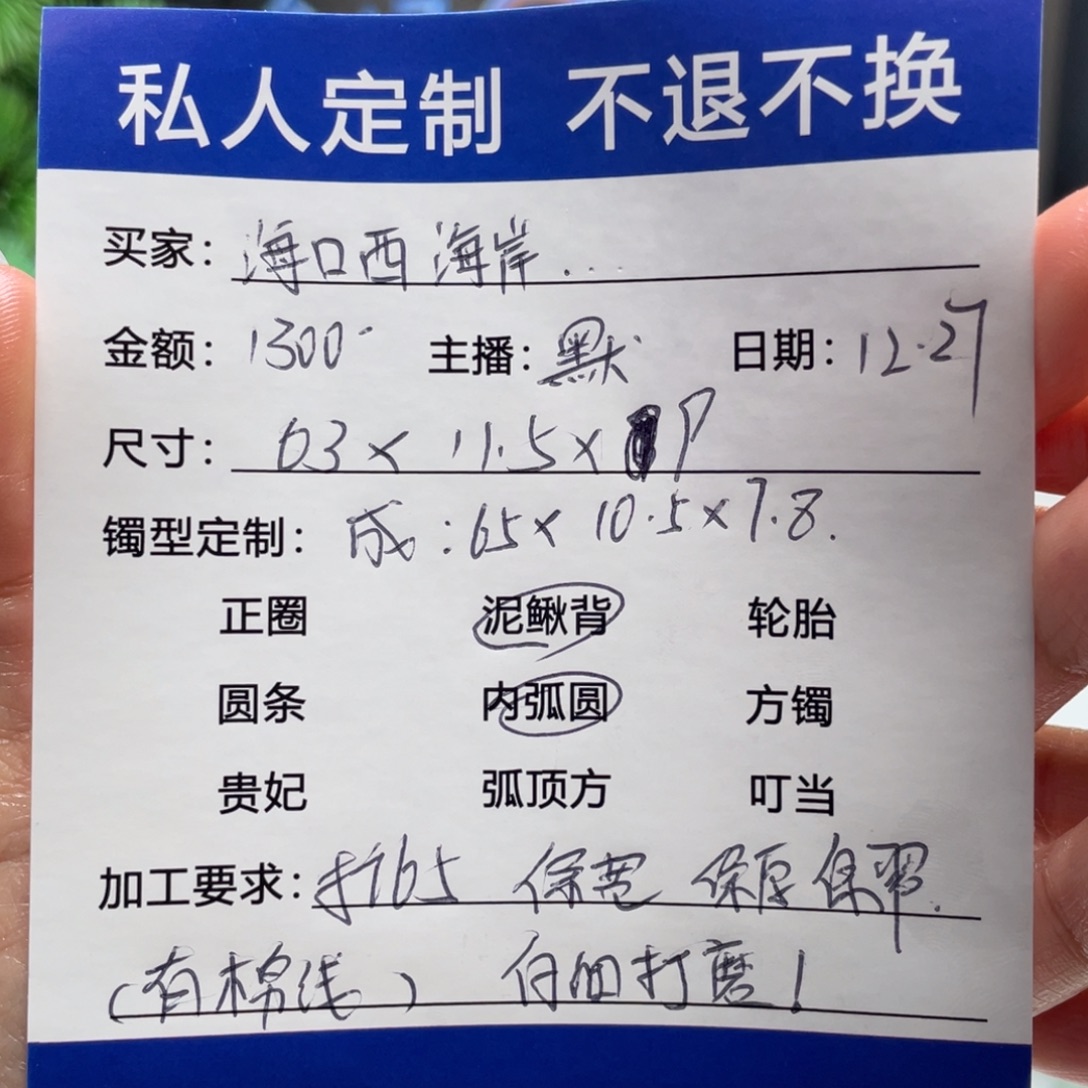 私人定制 不退不换
买家：海口西海岸....
金额：1300 主播：默 日期：12.27
尺寸：63×11.5×9
镯型定制：成：65×10.5×7.8.
正圈 泥鳅背 轮胎
圆条 内弧圆 方镯
贵妃 弧顶方 叮当
加工要求：打65 保宽 保厚 保翠.
（有棉线） 仔细打磨！